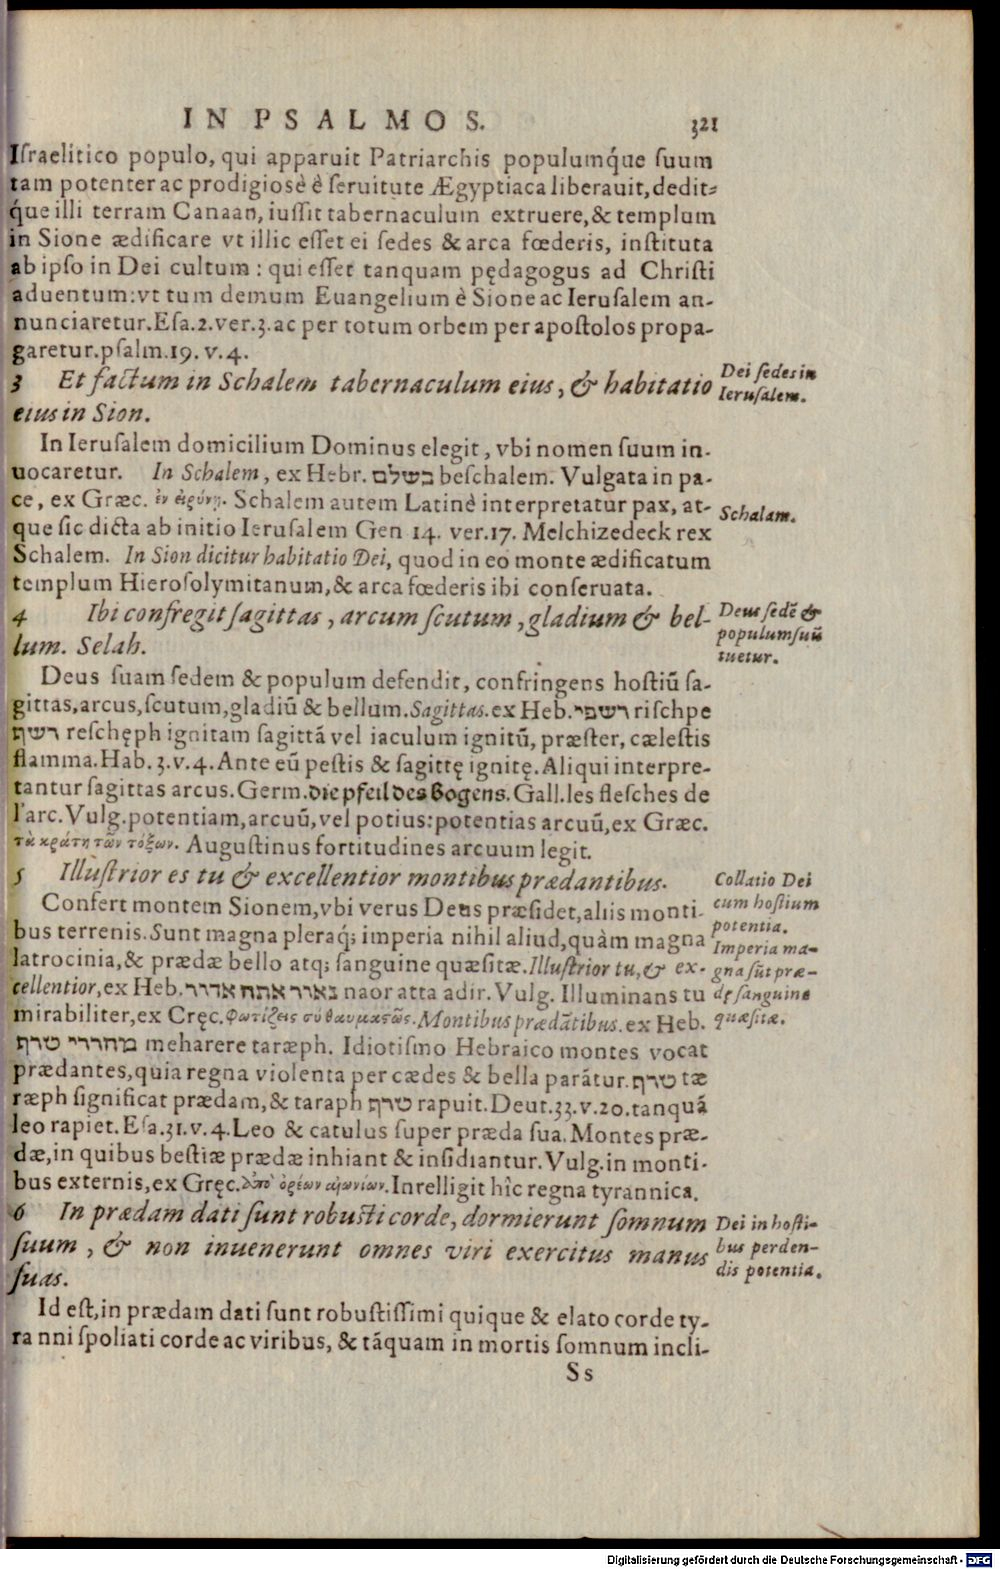 IN PSALMOS. 321
Iſraelitico populo, qui apparuit Patriarchis populumq́ue ſuum
tam potenter ac prodigiosè è ſeruitute Ægyptiaca liberauit, dedit-
q́ue illi terram Canaan, iuſſit tabernaculum extruere, & templum
in Sione ædificare vt illic eſſet ei ſedes & arca fœderis, inſtituta
ab ipſo in Dei cultum : qui eſſet tanquam pędagogus ad Chriſti
aduentum: vt tum demum Euangelium è Sione ac Ieruſalem an-
nunciaretur. Eſa. 2. ver. 3. ac per totum orbem per apoſtolos propa-
garetur. pſalm. 19. v. 4.
3 Et factum in Schalem tabernaculum eius, & habitatio
eius in Sion.
Dei ſedes in
Ieruſalem.
In Ieruſalem domicilium Dominus elegit, vbi nomen ſuum in-
uocaretur. In Schalem, ex Hebr. בשלם beſchalem. Vulgata in pa-
ce, ex Græc. ἐν εἰρήνῃ. Schalem autem Latinè interpretatur pax, at-
que ſic dicta ab initio Ieruſalem Gen 14. ver. 17. Melchizedeck rex
Schalem. In Sion dicitur habitatio Dei, quod in eo monte ædificatum
templum Hieroſolymitanum, & arca fœderis ibi conſeruata.
Schalam.
4 Ibi confregit ſagittas, arcum ſcutum, gladium & bel-
lum. Selah.
Deus ſedē &
populum ſuū
tuetur.
Deus ſuam ſedem & populum defendit, confringens hoſtiū ſa-
gittas, arcus, ſcutum, gladiū & bellum. Sagittas. ex Heb. רשפי riſchpe
רשף reſchęph ignitam ſagittā vel iaculum ignitū, præſter, cæleſtis
flamma. Hab. 3. v. 4. Ante eū peſtis & ſagittę ignitę. Aliqui interpre-
tantur ſagittas arcus. Germ. die pfeil des Bogens. Gall. les fleſches de
l'arc. Vulg. potentiam, arcuū, vel potius: potentias arcuū, ex Græc.
τὰ κράτη τῶν τόξων. Auguſtinus fortitudines arcuum legit.
5 Illuſtrior es tu & excellentior montibus prædantibus.
Collatio Dei
cum hoſtium
potentia.
Imperia ma-
gna sūt præ-
dę ſanguine
quæſitæ.
Confert montem Sionem, vbi verus Deus præſidet, aliis monti-
bus terrenis. Sunt magna pleraq; imperia nihil aliud, quàm magna
latrocinia, & prædæ bello atq; ſanguine quæſitæ. Illuſtrior tu, & ex-
cellentior, ex Heb. נאור אתה אדיר naor atta adir. Vulg. Illuminans tu
mirabiliter, ex Gręc. Φωτίζεις σὺ θαυμαστῶς. Montibus prædātibus. ex Heb.
מהררי טרף meharere taræph. Idiotiſmo Hebraico montes vocat
prædantes, quia regna violenta per cædes & bella parātur. טרף tæ
ræph ſignificat prædam, & taraph טרף rapuit. Deut. 33. v. 20. tanquā
leo rapiet. Eſa. 31. v. 4. Leo & catulus ſuper præda ſua. Montes præ-
dæ, in quibus beſtiæ prædæ inhiant & inſidiantur. Vulg. in monti-
bus externis, ex Gręc. ἀπὸ ὀρέων αἰωνίων. Intelligit hîc regna tyrannica.
6 In prædam dati ſunt robuſti corde, dormierunt ſomnum
ſuum, & non inuenerunt omnes viri exercitus manus
ſuas.
Dei in hoſti-
bus perden-
dis potentia.
Id eſt, in prædam dati ſunt robuſtiſſimi quique & elato corde ty-
ranni ſpoliati corde ac viribus, & tāquam in mortis ſomnum incli-
Ss
Digitalisierung gefördert durch die Deutsche Forschungsgemeinschaft - DFG